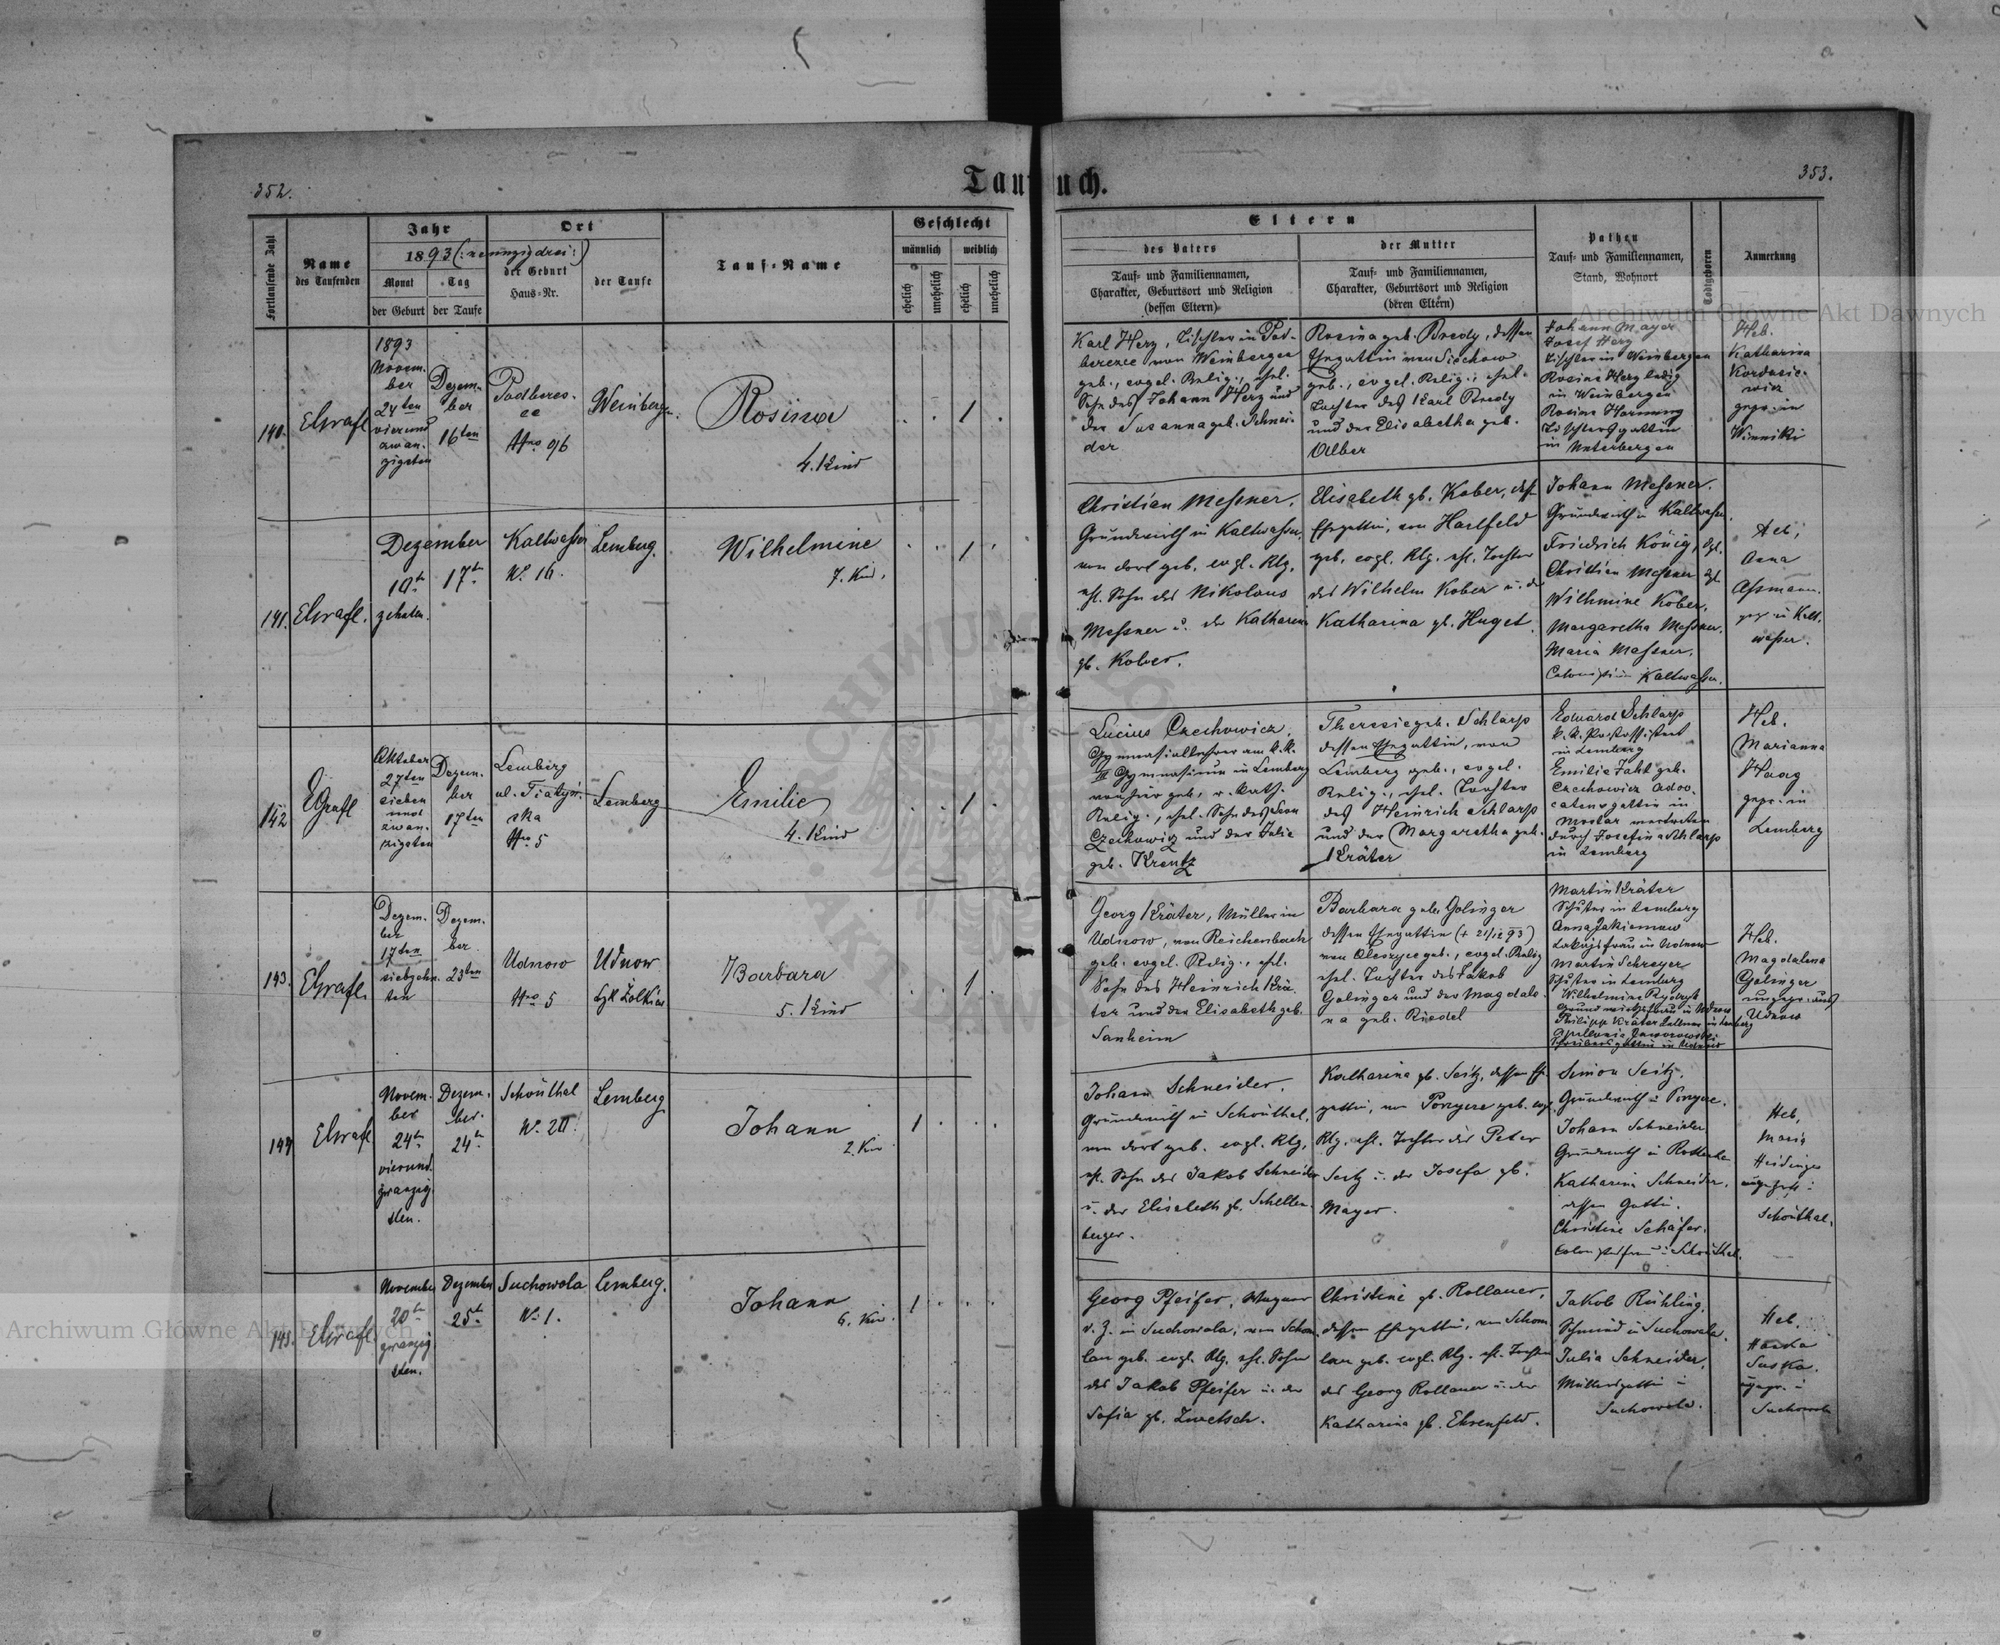 352.
Taufbuch.
353.
Fortlaufende Zahl
Name
des Taufenden
Jahr
1893 (: neunzig drei :)
Monat
Tag
der Geburt
der Taufe
Ort
der Geburt
Haus-Nr.
der Taufe
Tauf-Name
Geschlecht
männlich
weiblich
ehelich
unehelich
ehelich
unehelich
Eltern
des Vaters
Tauf- und Familiennamen,
Charakter, Geburtsort und Religion
(dessen Eltern)
der Mutter
Tauf- und Familiennamen,
Charakter, Geburtsort und Religion
(deren Eltern)
Pathen
Tauf- und Familiennamen,
Stand, Wohnort
Todtgeboren
Anmerkung
140.
1893
Novem-
ber
24ten
vierund
zwan-
zigsten
Dezem-
ber
16ten
Podberez-
ce
Nro 96
Weinbergen
Rosina
4. Kind
1
Karl Herz, Tischler in Pod-
berezce von Weinbergen
geb., evgel. Relig., ehel.
Sohn des Johann Herz und
der Susanna geb. Schnei-
der
Rosina geb. Bredy, dessen
Ehegattin von
geb., evgel. Relig., ehel.
Tochter des Karl Bredy
und der Elisabetha geb.
Alber
Johann Mayer
Josef Herz
Tischler in Weinbergen
Rosina Herz ledig
in Weinbergen
Rosina Hornung
Tischlersgattin
in Unterbergen
Heb.
Katharina
Kordasie-
wicz
gepr. in
Winniki
141.
Dezember
10t.
zehnten.
17t.
Kaltwasser
No 16.
Lemberg.
Wilhelmine
7. Kind.
1
Christian Messner,
Grundwirth in Kaltwasser,
von dort geb. evgl. Rlg.
ehl. Sohn des Nikolaus
Messner u. der Katharina
gb. Kober.
Elisabeth gb. Kober, dess.
Ehegattin, von Hartfeld
geb. evgl. Rlg. ehl. Tochter
des Wilhelm Kober u. der
Katharina gb. Huget.
Johann Messner.
Grundwirth in Kaltwasser.
Friedrich König, dgl.
Christian Messner dgl.
Wilhmine Kober,
Margaretha Messner.
Maria Messner.
Kaltwasser.
Heb.
Anna
Assmann.
gepr. in Kalt-
wasser.
142
Oktober
27ten
sieben
und
zwan-
zigsten
Dezem-
ber
17ten
Lemberg
ska
Nro 5
Lemberg
Emilie
4. Kind
1
Lucius Czechowicz,
Gymnasiallehrer am k.k.
Gymnasium in Lemberg
von hier geb., r. kath.
Relig., ehel. Sohn des Leon
Czechowicz und der Julie
geb. Kreutz
Theresie geb. Schlarp
dessen Ehegattin, von
Lemberg geb., evgel.
Relig., ehel. Tochter
des Heinrich Schlarp
und der Margaretha geb.
Kräter
Eduard Schlarp
k. k. Postassistent
in Lemberg
Emilie Fahl geb.
Czechowicz Advo-
catensgattin in
Mostar vertreten
durch Josefine Schlarp
in Lemberg
Heb.
Marianna
Haag
gepr. in
Lemberg
143.
Dezem-
ber
17ten
siebzehn-
ten
Dezem-
ber
23ten
Udnow
Nro 5
Udnow
Barbara
5. Kind
1
Georg Kräter, Müller in
Udnow, von Reichenbach
geb. evgel. Relig., ehl.
Sohn des Heinrich Krä-
ter und der Elisabeth geb.
Sanheim
Barbara geb. Golinger
dessen Ehegattin († 21/12 93)
geb., evgel. Relig
ehel. Tochter des Jakob
Golinger und der Magdale-
na geb. Riedel
Martin Kräter
Schuster in Lemberg
in Udnow
Martin Schreyer
Schuster in Lemberg
Wilhelmine
Heb.
Magdalena
Golinger
Udnow
144
Novem-
ber
24t.
vierund
zwanzig
sten.
Dezem-
ber.
24t.
Schönthal
Lemberg
Johann
2. Kind
1
Johann Schneider,
Grundwirth in Schönthal,
von dort geb. evgl. Rlg.
ehl. Sohn des Jakob Schneider
u. der Elisabeth gb. Schellen-
berger.
Katharina gb. Seitz, dessen Ehe-
gattin, von geb. evgl.
Rlg. ehl. Tochter des Peter
Seitz u. der Josefa gb.
Mayer.
Simon Seitz,
Grundwirth in
Johann Schneider
Grundwirth in
Katharina Schneider,
dessen Gattin.
Christine Schäfer.
in Schönthal.
Heb.
Maria
Heidinger
Schönthal.
145.
November
20t.
zwanzig
sten.
Dezember
25t.
Suchowola
No 1.
Lemberg.
Johann
6. Kind.
1
Georg Pfeifer, Wagner
d. Z. in Suchowola, von Schom-
lau geb. evgl. Rlg. ehl. Sohn
des Jakob Pfeifer u. der
Sofia gb. Zwetsch.
Christine gb. Rollauer,
dessen Ehegattin, von Schom
lau geb. evgl. Rlg. ehl. Tochter
des Georg Rollauer u. der
Katharina gb. Ehrenfeld.
Jakob Rühling,
Schmied in Suchowola.
Julia Schneider,
Müllersgattin in
Suchowola.
Heb.
Hanka
Suska.
Suchowola
Archiwum Główne Akt Dawnych
Archiwum Główne Akt Dawnych